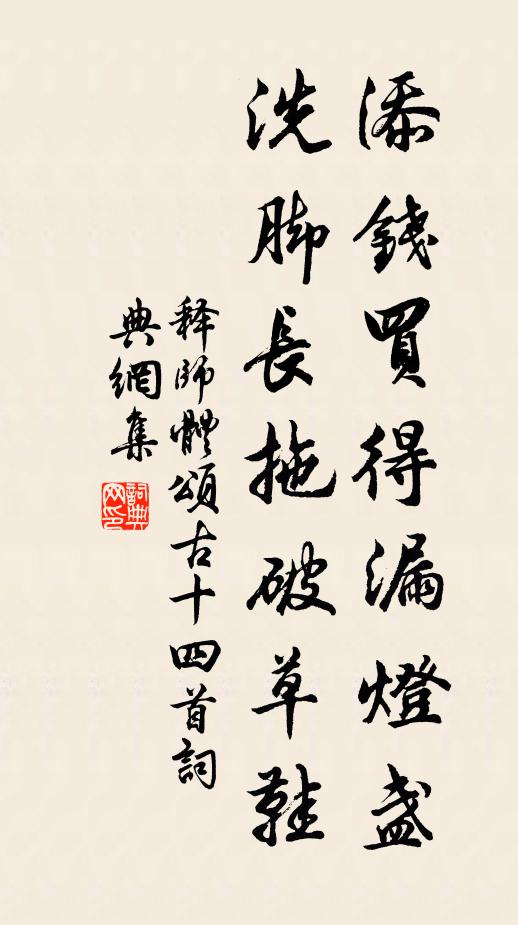 添錢買得漏燈盞
洗脚長拖破草鞋
释師體頌古十四首詞
典網集
詞典网印